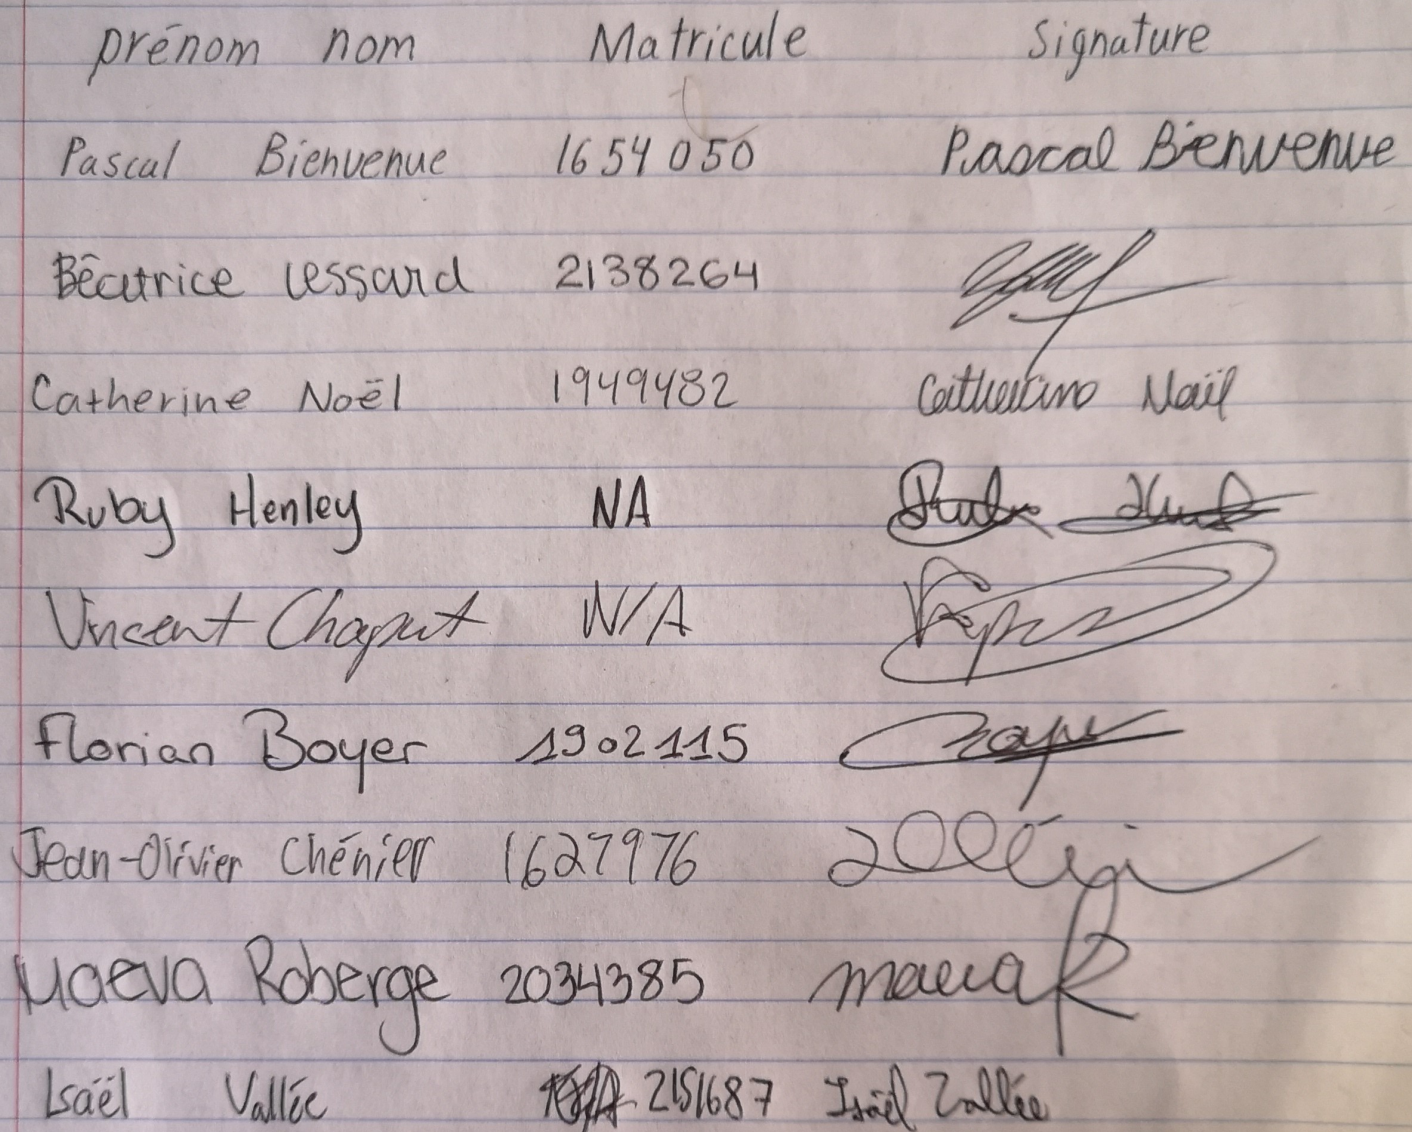 prénom nom Matricule Signature
Pascal Bienvenue 1654050 Pascal Bienvenue
Béatrice Lessard 2138264
Catherine Noël 1949482 Catherine Noël
Ruby Henley NA
Vincent Chaput N/A
Florian Boyer 1902115
Jean-Olivier Chénier 1627976
Maeva Roberge 2034385 maeva R
Isäël Vallée 2151687 Isäël Vallée